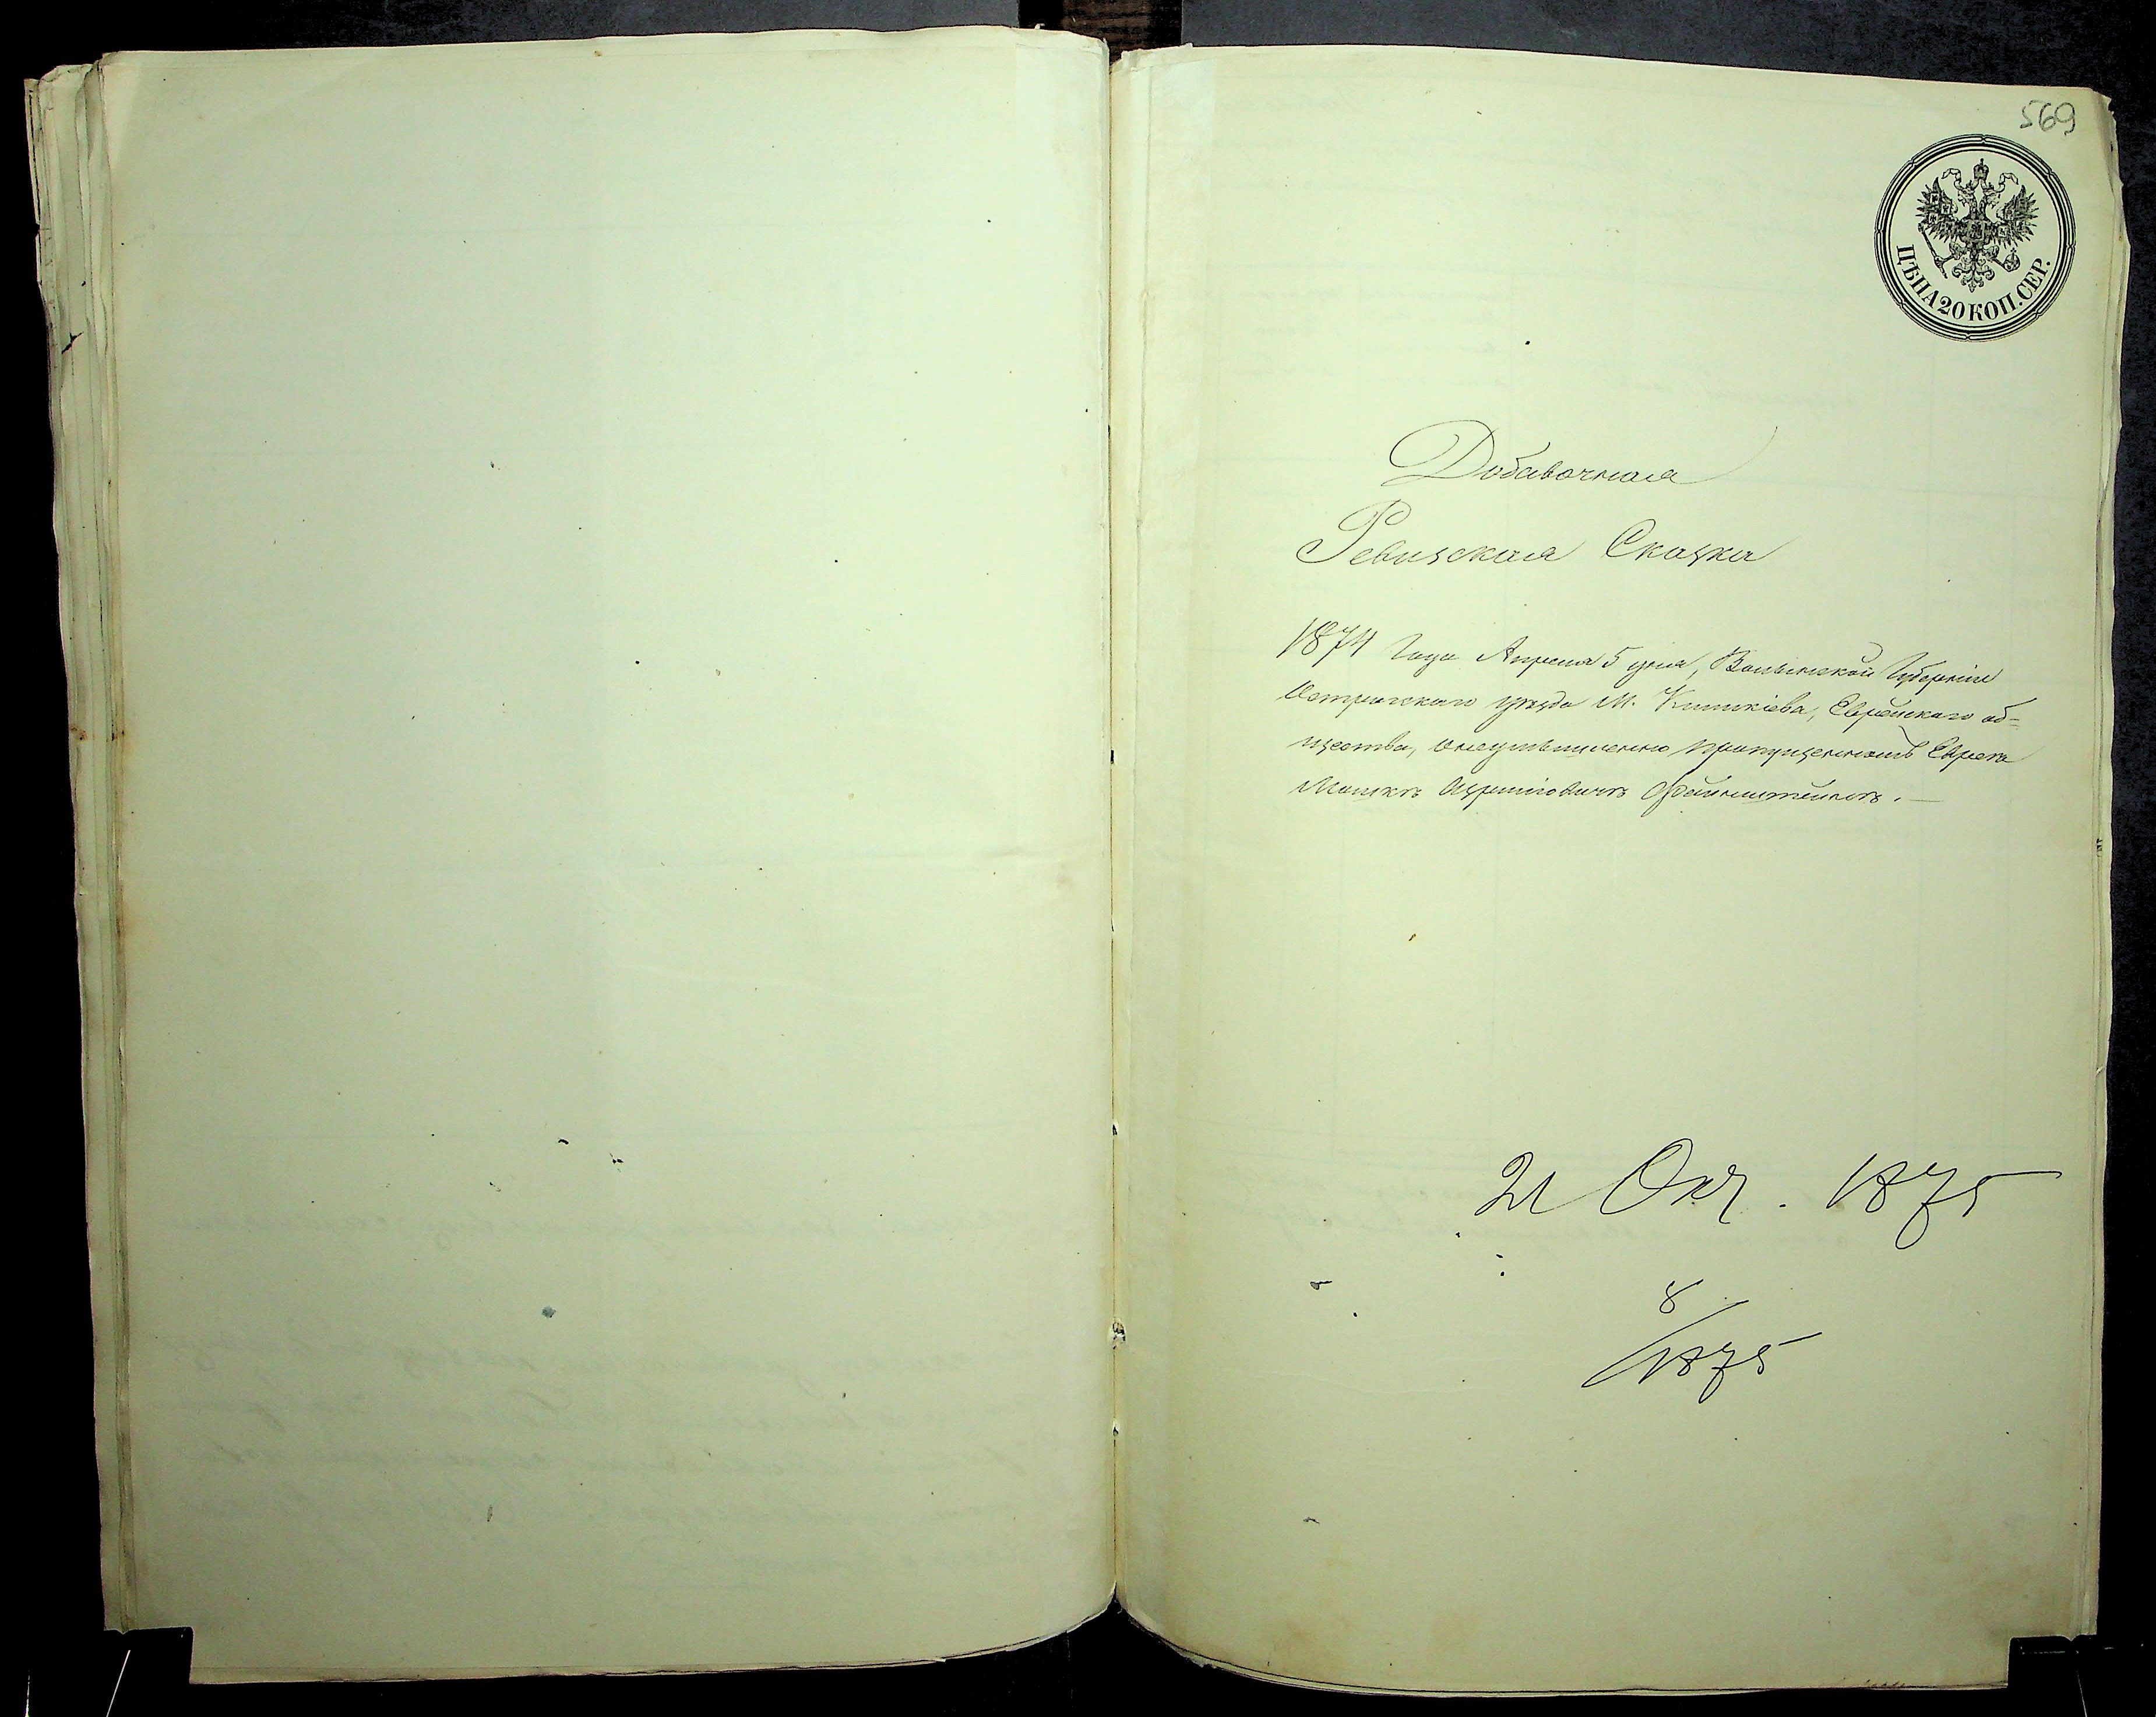 569
ЦѢНА 20 КОП. СЕР.
Добавочная
Ревизская Сказка
1874 Года Апреля 5 дня, Волынской Губерніи
Острожского уѣзда М. Кишкіева, Еврейскаго об=
щества, о неумышленно пропущенномъ Евреѣ
Мошкѣ Ицриловичѣ Файнштейнѣ.
21 Окт. 1875
8
/1875